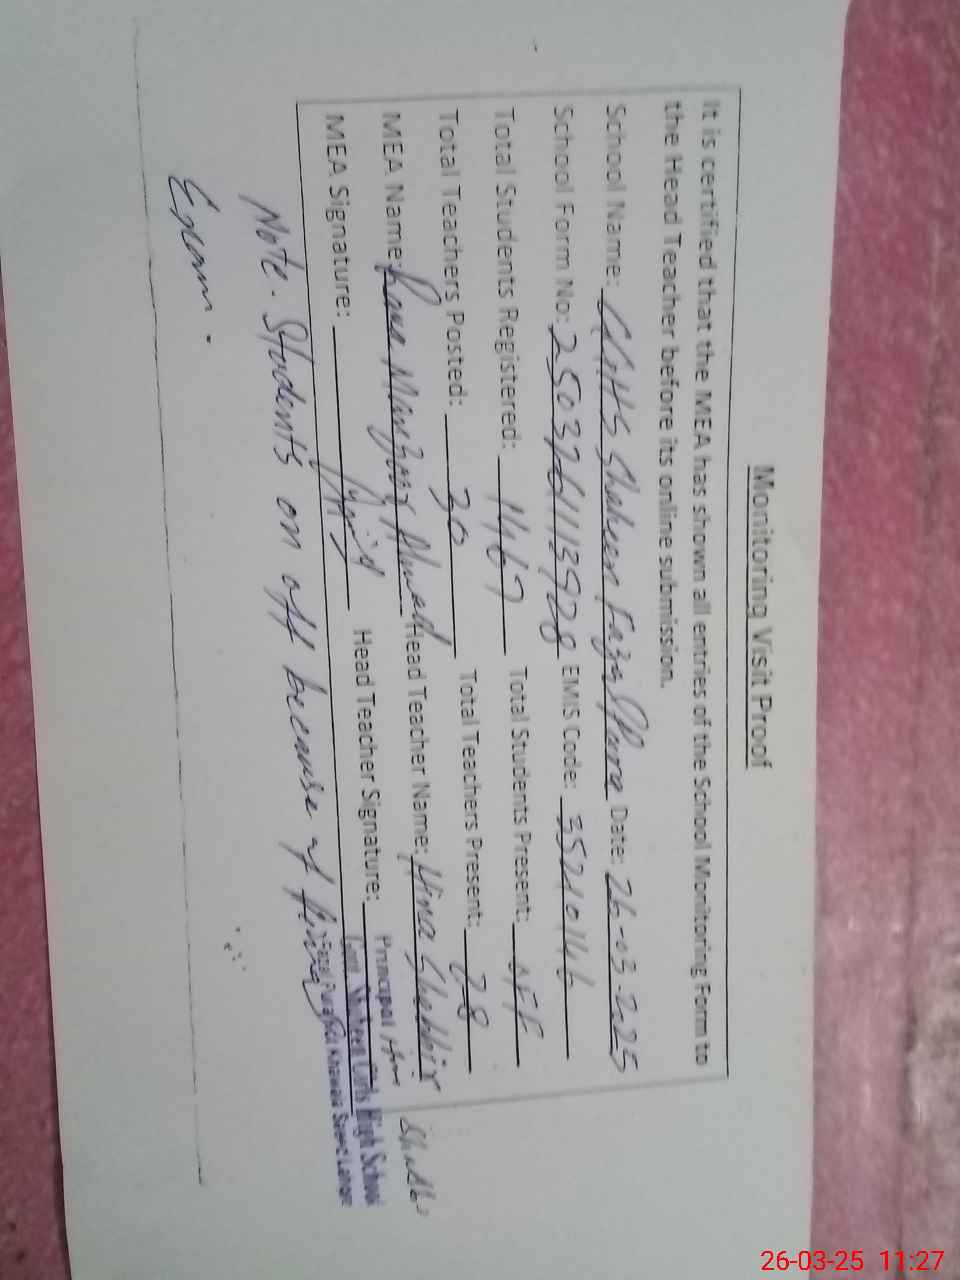 Monitoring Visit Proof
It is certified that the MEA has shown all entries of the School Monitoring Form to
the Head Teacher before its online submission.
School Name: GGHS Shaheen Fazal Pura Date: 26-03-2025
School Form No: 2503761139728 EMIS Code: 35210146
Total Students Registered: 1167 Total Students Present: OFF
Total Teachers Posted: 30 Total Teachers Present: 28
MEA Name: Rana Manzoor Ahmad Head Teacher Name: Hina Shabbir
MEA Signature: Head Teacher Signature:
Principal
Govt. Shaheen Girls High School
Lahore
Note. Students on off because of
Exam.
26-03-25 11:27